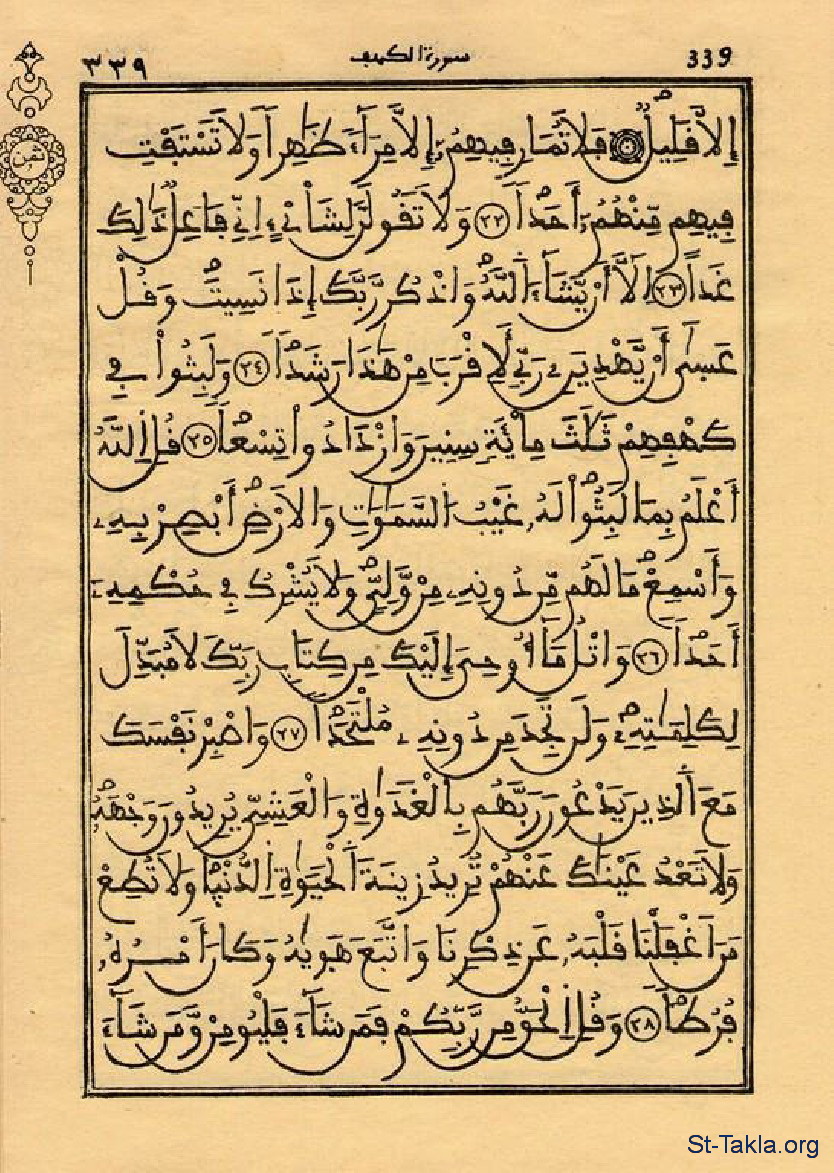 339 سورة الكهف ٣٣٩
ثمن
إِلاَّ قَلِيلٌ ۞ فَلاَ تُمَارِ فِيهِمُۥٓ إِلاَّ مِرَآءٗ ظَٰهِراٗ وَلاَ تَسْتَفْتِ
فِيهِم مِّنْهُمُۥٓ أَحَداٗ ٢٢ وَلاَ تَقُولَنَّ لِشَاْےْءٍ اِنِّے فَاعِلٞ ذَٰلِكَ
غَداً ٢٣ اِلَّآ أَنْ يَّشَآءَ اَ۬للَّهُ وَاذْكُر رَّبَّكَ إِذَا نَسِيتَ وَقُلْ
عَسَىٰٓ أَنْ يَّهْدِيَنِۦ رَبِّے لِأَقْرَبَ مِنْ هَٰذَا رَشَداٗ ٢٤ وَلَبِثُواْ فِے
كَهْفِهِمْ ثَلَٰثَ مِاْئَةٖ سِنِينَ وَازْدَادُواْ تِسْعاٗ ٢٥ قُلِ اِ۬للَّهُ
أَعْلَمُ بِمَا لَبِثُواْ لَهُۥ غَيْبُ اُ۬لسَّمَٰوَٰتِ وَالَارْضِ أَبْصِرْ بِهِۦ
وَأَسْمِعْ مَا لَهُم مِّن دُونِهِۦ مِنْ وَّلِيّٖ وَلاَ يُشْرِكُ فِے حُكْمِهِۦٓ
أَحَداٗ ٢٦ وَاتْلُ مَآ أُوحِيَ إِلَيْكَ مِن كِتَابِ رَبِّكَ لاَ مُبَدِّلَ
لِكَلِمَٰتِهِۦ وَلَن تَجِدَ مِن دُونِهِۦ مُلْتَحَداٗ ٢٧ وَاصْبِرْ نَفْسَكَ
مَعَ اَ۬لذِينَ يَدْعُونَ رَبَّهُم بِالْغَدَوٰةِ وَالْعَشِيِّ يُرِيدُونَ وَجْهَهُۥ
وَلاَ تَعْدُ عَيْنَٰكَ عَنْهُمْ تُرِيدُ زِينَةَ اَ۬لْحَيَوٰةِ اِ۬لدُّنْيَا وَلاَ تُطِعْ
مَنَ اَغْفَلْنَا قَلْبَهُۥ عَن ذِكْرِنَا وَاتَّبَعَ هَوَيٰهُ وَكَانَ أَمْرُهُۥ
فُرُطاٗ ٢٨ وَقُلِ اِ۬لْحَقُّ مِن رَّبِّكُمْ فَمَن شَآءَ فَلْيُومِنْ وَّمَن شَآءَ
St-Takla.org